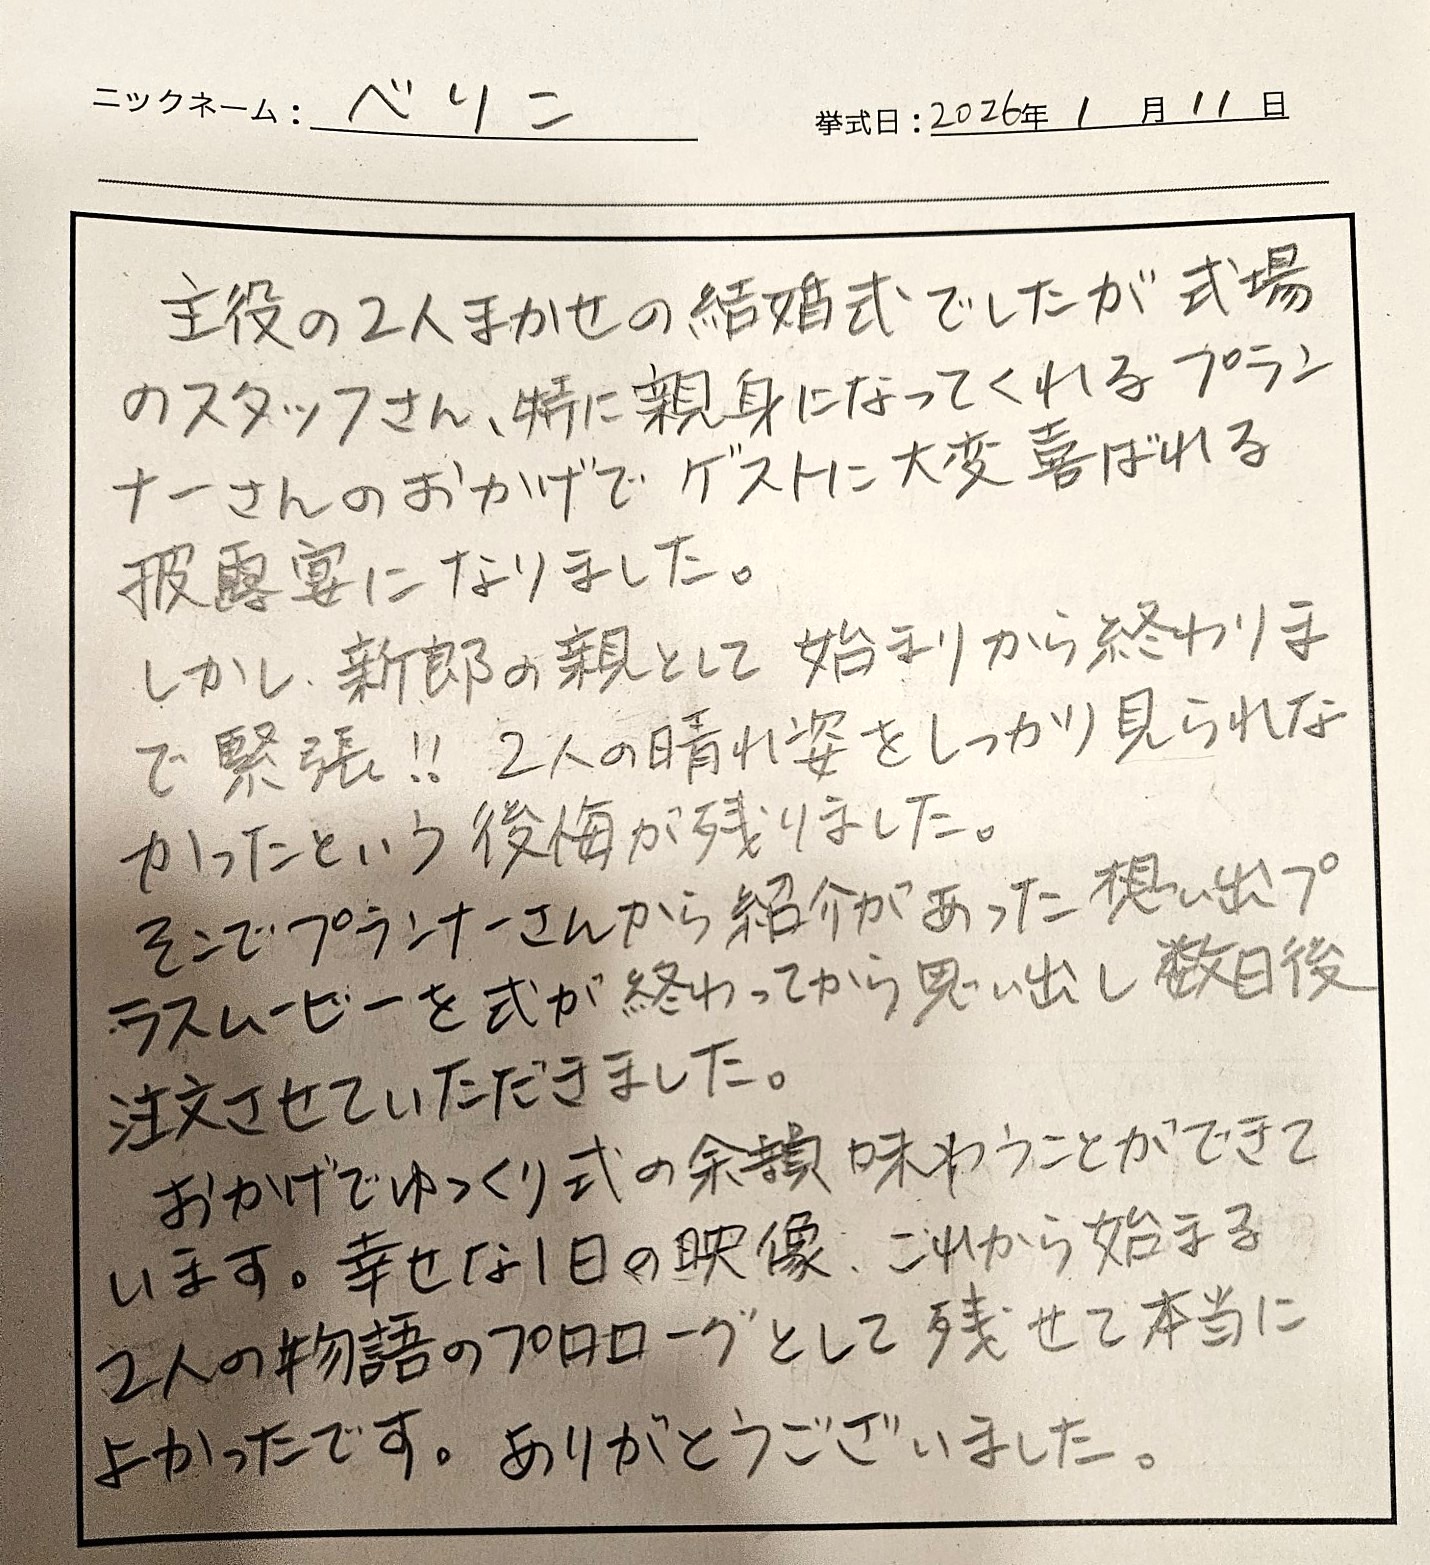 ニックネーム： べりこ
挙式日：2026年 1 月 11 日
主役の2人まかせの結婚式でしたが式場
のスタッフさん、特に親身になってくれるプラン
ナーさんのおかげで ゲストに大変喜ばれる
披露宴になりました。
しかし、新郎の親として 始まりから終わりま
で緊張!! 2人の晴れ姿をしっかり見られな
かったという後悔が残りました。
そこでプランナーさんから紹介があった想い出プ
ラスムービーを式が終わってから思い出し数日後
注文させていただきました。
おかげでゆっくり式の余韻味わうことができて
います。幸せな1日の映像、これから始まる
2人の物語のプロローグとして残せて本当に
よかったです。ありがとうございました。